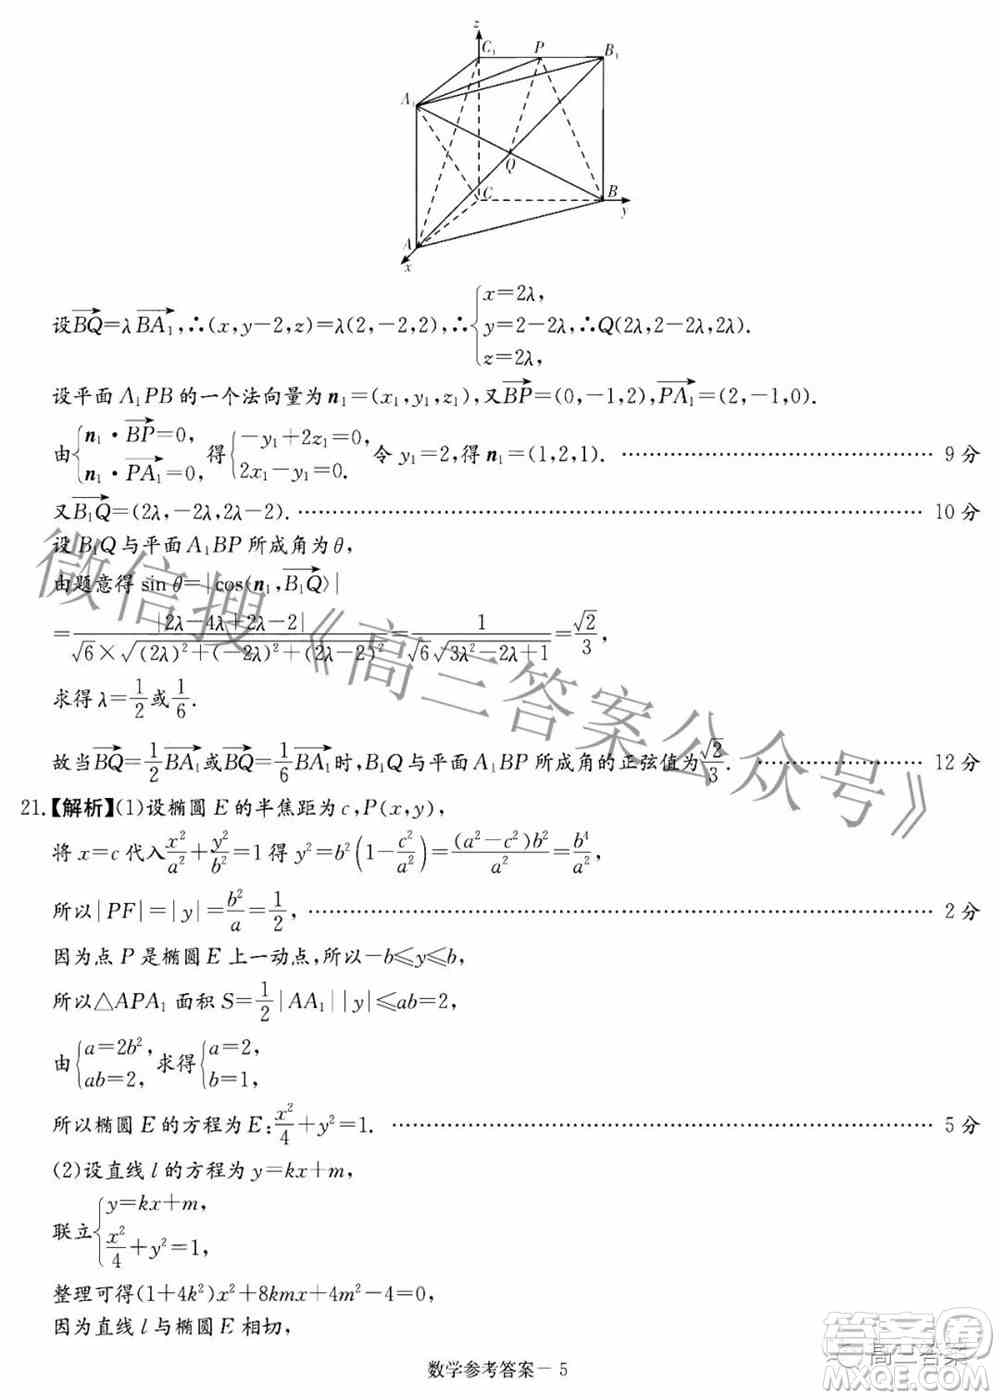 z
C₁ P B₁
A₁
Q
C B
y
A
x
设$\overrightarrow{BQ}=\lambda\overrightarrow{BA_1}$,∴(x,y−2,z)=λ(2,−2,2),∴$\begin{cases}x=2\lambda,\\y=2-2\lambda,\\z=2\lambda,\end{cases}$∴Q(2λ,2−2λ,2λ).
设平面 A₁PB 的一个法向量为 n₁=(x₁,y₁,z₁),又$\overrightarrow{BP}$=(0,−1,2),$\overrightarrow{PA_1}$=(2,−1,0).
由$\begin{cases}n_1\cdot\overrightarrow{BP}=0,\\n_1\cdot\overrightarrow{PA_1}=0,\end{cases}$得$\begin{cases}-y_1+2z_1=0,\\2x_1-y_1=0.\end{cases}$令 y₁=2,得 n₁=(1,2,1). ………… 9 分
又$\overrightarrow{B_1Q}$=(2λ,−2λ,2λ−2). ………… 10 分
设 B₁Q 与平面 A₁BP 所成角为 θ,
由题意得 sin θ=|cos⟨n₁,$\overrightarrow{B_1Q}$⟩|
$=\frac{|2\lambda-4\lambda+2\lambda-2|}{\sqrt{6}\times\sqrt{(2\lambda)^2+(-2\lambda)^2+(2\lambda-2)^2}}=\frac{1}{\sqrt{6}\sqrt{3\lambda^2-2\lambda+1}}=\frac{\sqrt{2}}{3}$,
求得 λ=$\frac{1}{2}$或$\frac{1}{6}$.
故当$\overrightarrow{BQ}=\frac{1}{2}\overrightarrow{BA_1}$或$\overrightarrow{BQ}=\frac{1}{6}\overrightarrow{BA_1}$时,B₁Q 与平面 A₁BP 所成角的正弦值为$\frac{\sqrt{2}}{3}$. ………… 12 分
21.【解析】(1)设椭圆 E 的半焦距为 c,P(x,y),
将 x=c 代入$\frac{x^2}{a^2}+\frac{y^2}{b^2}=1$得 $y^2=b^2\left(1-\frac{c^2}{a^2}\right)=\frac{(a^2-c^2)b^2}{a^2}=\frac{b^4}{a^2}$,
所以|PF|=|y|=$\frac{b^2}{a}=\frac{1}{2}$, ………… 2 分
因为点 P 是椭圆 E 上一动点,所以−b≤y≤b,
所以△APA₁ 面积 S=$\frac{1}{2}$|AA₁||y|≤ab=2,
由$\begin{cases}a=2b^2,\\ab=2,\end{cases}$求得$\begin{cases}a=2,\\b=1,\end{cases}$
所以椭圆 E 的方程为 E:$\frac{x^2}{4}+y^2=1$. ………… 5 分
(2)设直线 l 的方程为 y=kx+m,
联立$\begin{cases}y=kx+m,\\\frac{x^2}{4}+y^2=1,\end{cases}$
整理可得(1+4k²)x²+8kmx+4m²−4=0,
因为直线 l 与椭圆 E 相切,
数学参考答案－ 5
微信搜《高三答案公众号》
高三答案
答案圈
MXQE.COM